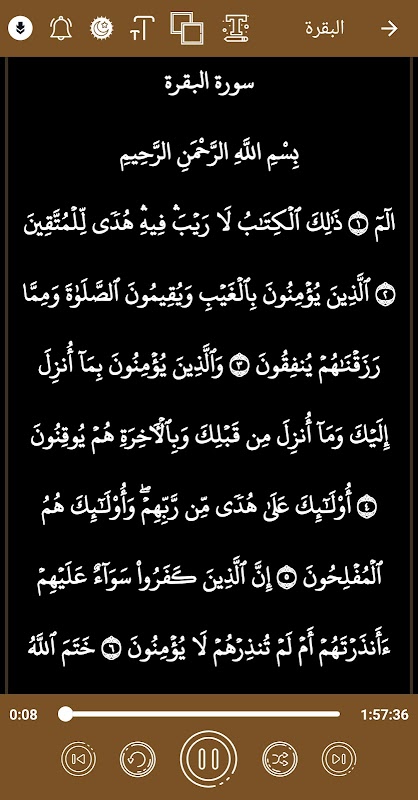 البقرة
سورة البقرة
بِسْمِ اللَّهِ الرَّحْمَنِ الرَّحِيمِ
الٓمٓ ١ ذَٰلِكَ ٱلْكِتَـٰبُ لَا رَيْبَ ۛ فِيهِ ۛ هُدًى لِّلْمُتَّقِينَ
٢ ٱلَّذِينَ يُؤْمِنُونَ بِٱلْغَيْبِ وَيُقِيمُونَ ٱلصَّلَوٰةَ وَمِمَّا
رَزَقْنَـٰهُمْ يُنفِقُونَ ٣ وَٱلَّذِينَ يُؤْمِنُونَ بِمَآ أُنزِلَ
إِلَيْكَ وَمَآ أُنزِلَ مِن قَبْلِكَ وَبِٱلْـَٔاخِرَةِ هُمْ يُوقِنُونَ
٤ أُو۟لَـٰٓئِكَ عَلَىٰ هُدًى مِّن رَّبِّهِمْ ۖ وَأُو۟لَـٰٓئِكَ هُمُ
ٱلْمُفْلِحُونَ ٥ إِنَّ ٱلَّذِينَ كَفَرُوا۟ سَوَآءٌ عَلَيْهِمْ
ءَأَنذَرْتَهُمْ أَمْ لَمْ تُنذِرْهُمْ لَا يُؤْمِنُونَ ٦ خَتَمَ ٱللَّهُ
0:08 1:57:36